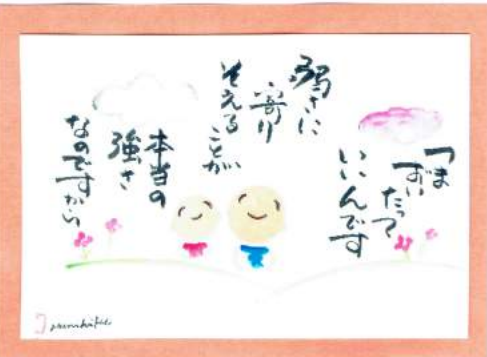 つま
ずい
たって
いいんです
弱さに
寄り
そえる
ことが
本当の
強さ
なのですから